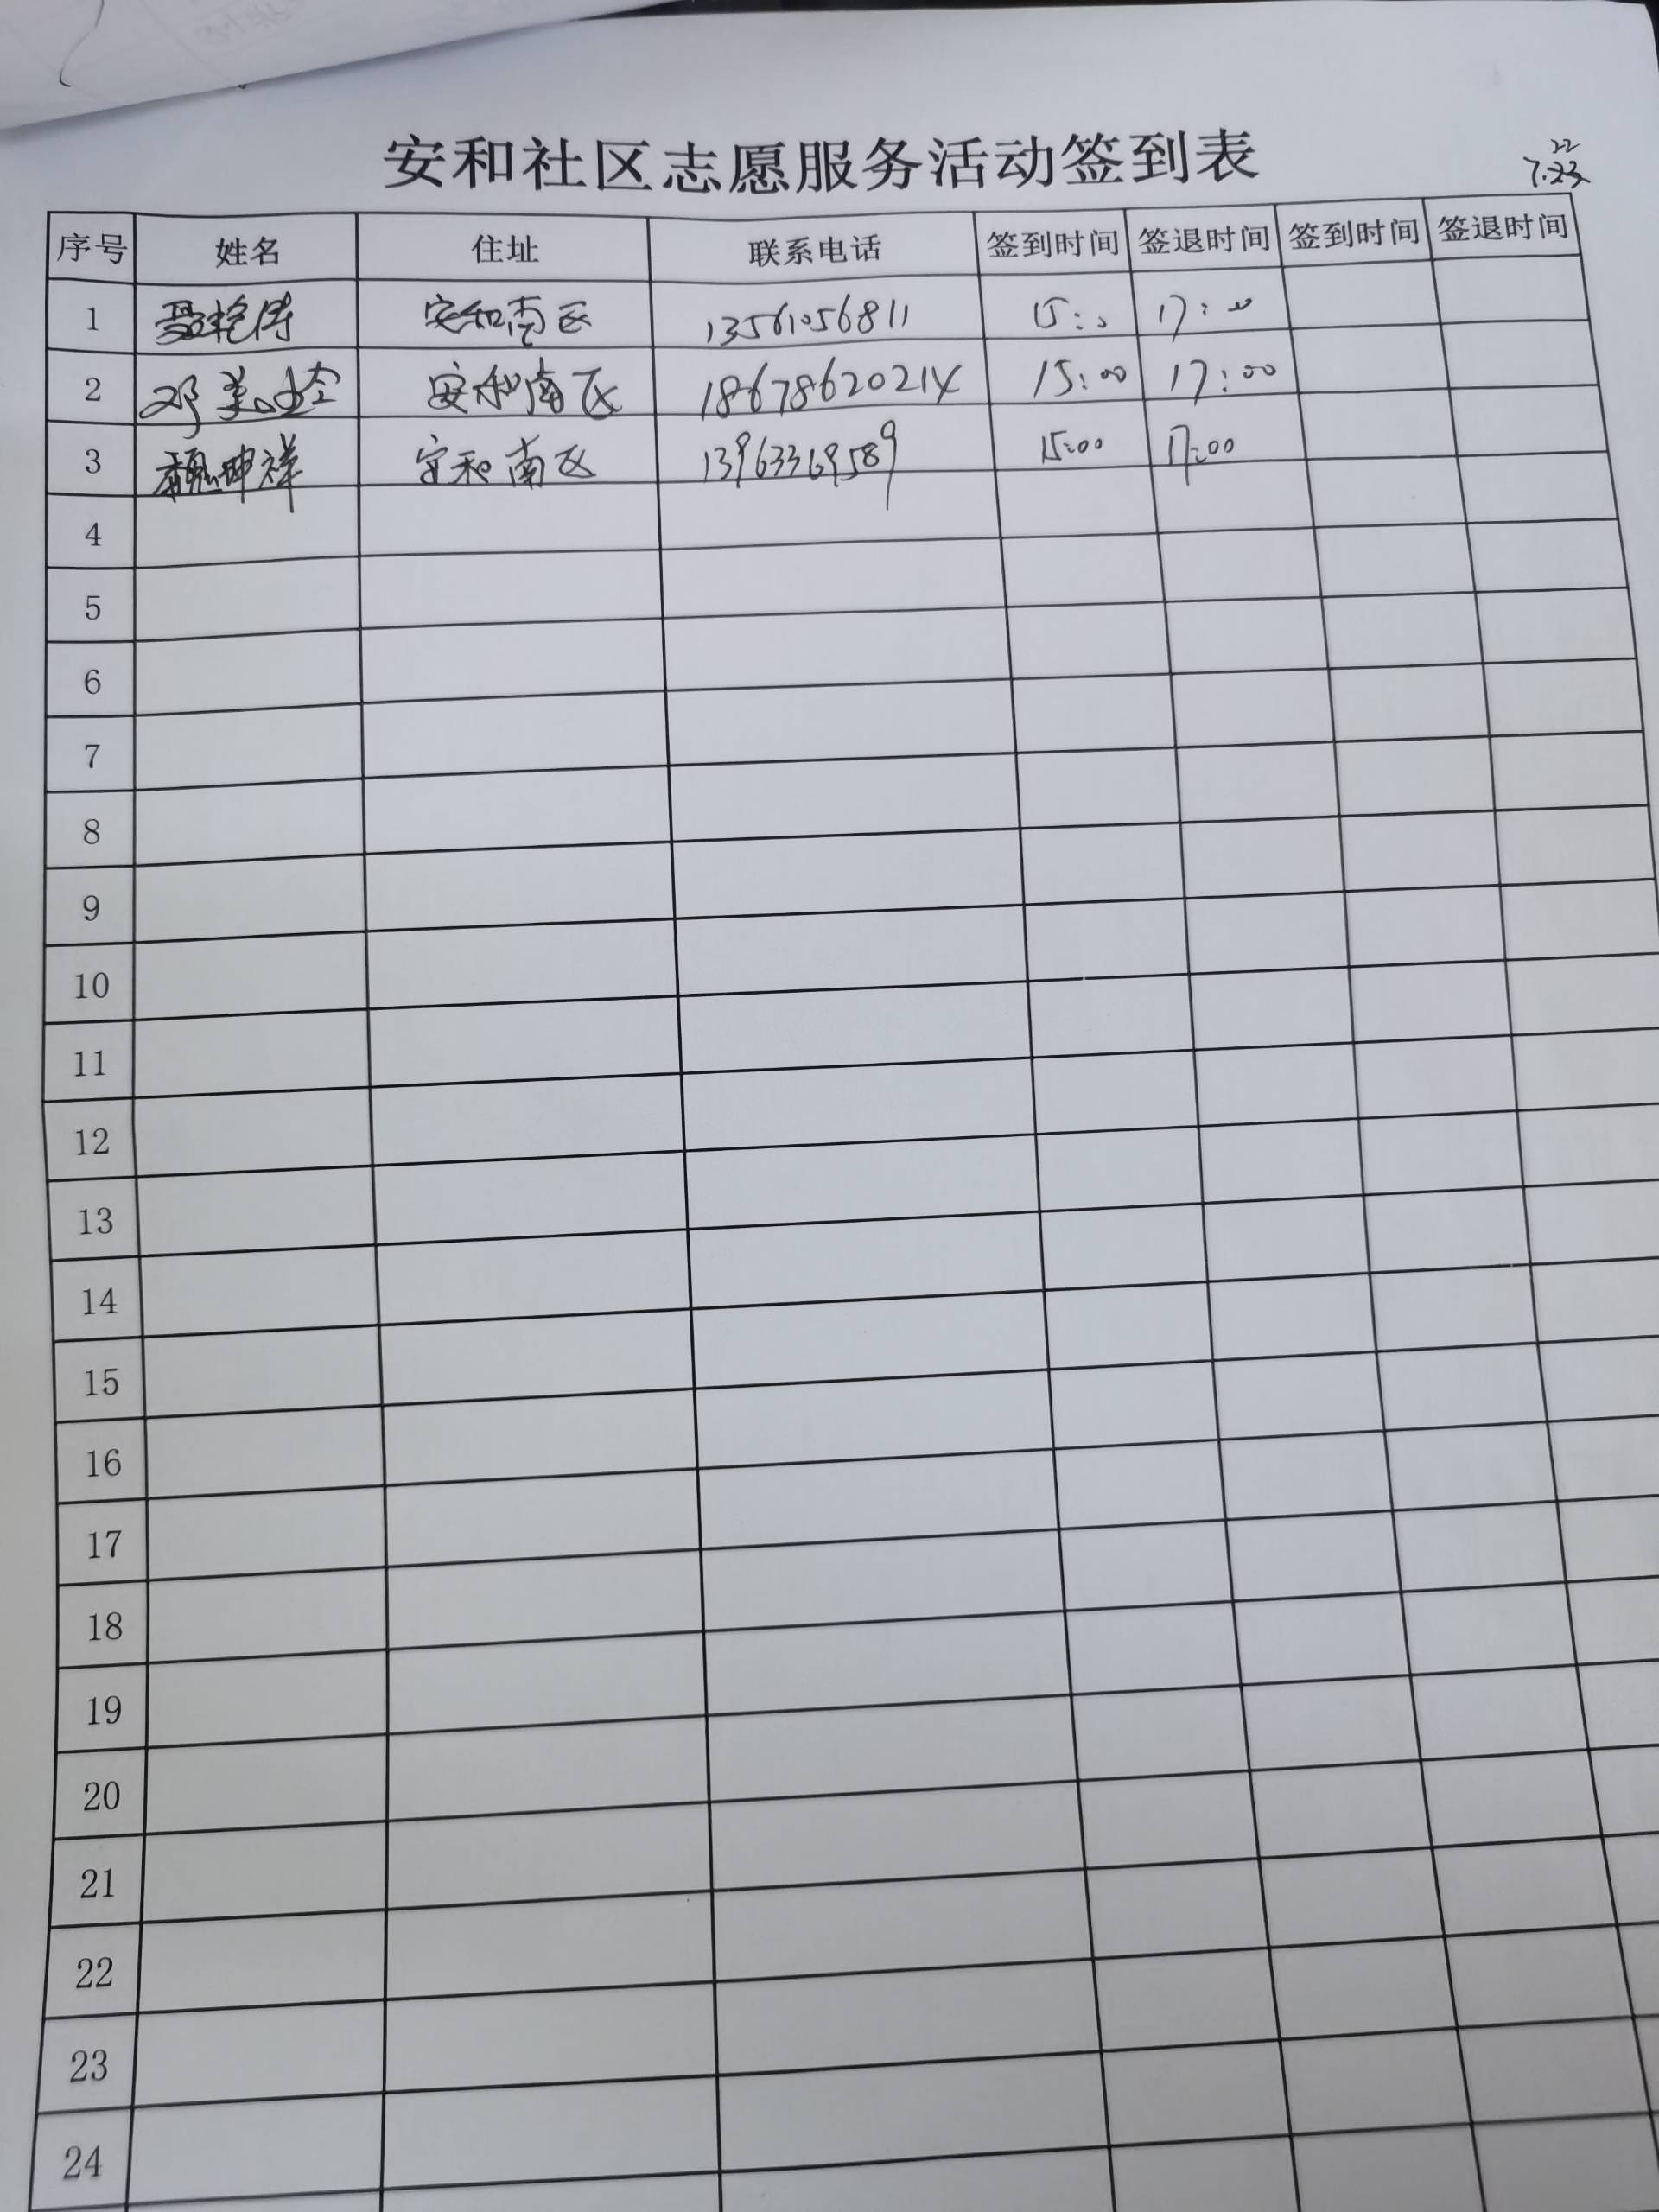 安和社区志愿服务活动签到表
22
7.23
序号 姓名 住址 联系电话 签到时间 签退时间 签到时间 签退时间
1 聂艳涛 安和南区 13561056811 15:00 17:00
2 邓美玲 安和南区 18678620214 15:00 17:00
3 魏坤祥 安和南区 13963369589 15:00 17:00
4
5
6
7
8
9
10
11
12
13
14
15
16
17
18
19
20
21
22
23
24